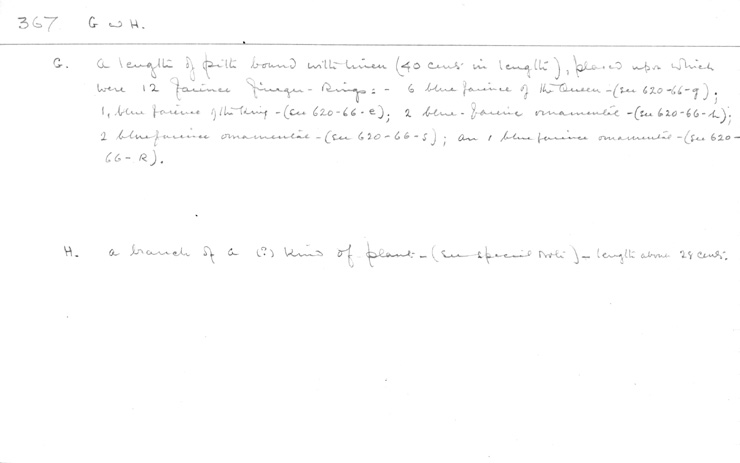 367 G & H.
G. A length of pith bound with linen (40 cents in length), placed upon which
were 12 faience finger-Rings:- 6 blue faience of the Queen - (see 620-66-g);
1, blue faience of the King - (see 620-66-e); 2 blue-faience ornamental - (see 620-66-h);
2 blue faience ornamental - (see 620-66-s); an 1 blue faience ornamental - (see 620-
66-R).
H. a branch of a (?) kind of plant - (see special note) - length above 28 cents.